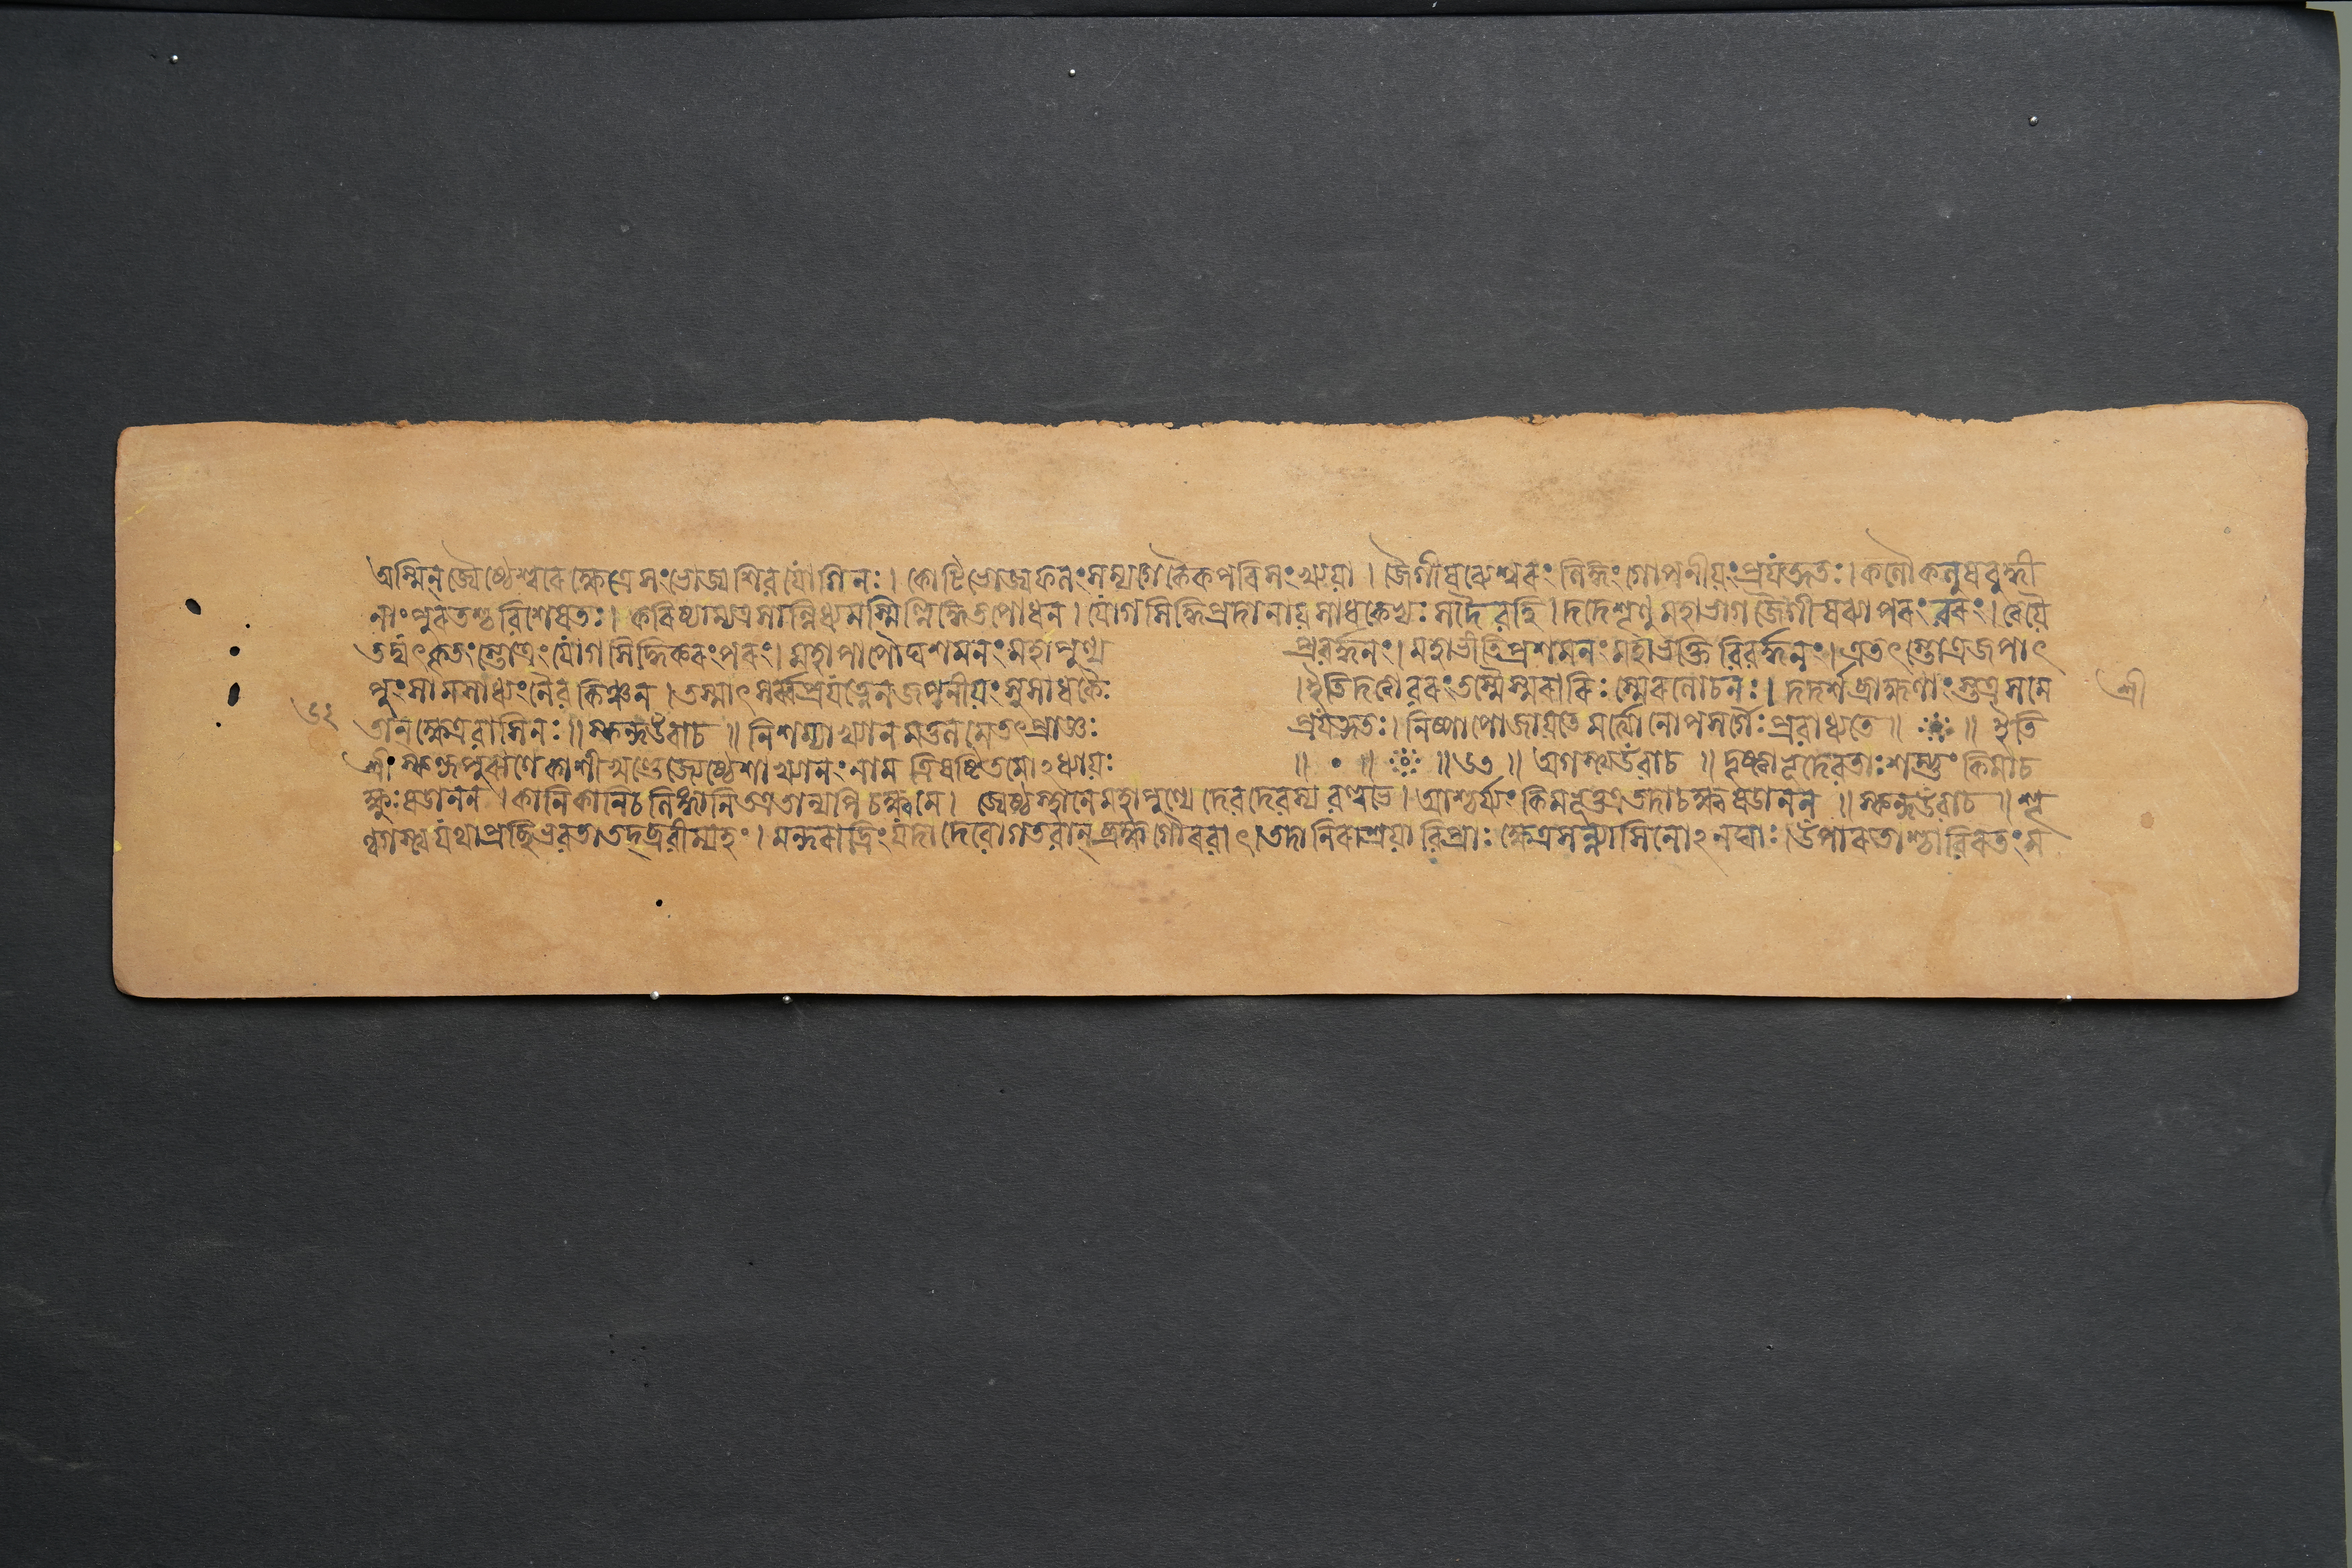 অস্মিন্ জ্যেষ্ঠেশ্বরক্ষেত্রে সংভোজ্য শিবযোগিনঃ। কোটিভোজ্যফলং সম্যগেকৈকপরিসংখ্যয়া। জৈগীষব্যেশ্বরং লিঙ্গং গোপনীয়ং প্রযত্নতঃ। কলৌ কলুষবুদ্ধী
নাং পুরতশ্চ বিশেষতঃ। করিষ্যাম্যত্র সান্নিধ্যমস্মিল্লিঙ্গে তপোধন। যোগসিদ্ধিপ্রদানায় সাধকেভ্যঃ সদৈব হি। দদে শৃণু মহাভাগ জৈগীষব্যাপরং বরং। ত্বয়ৈ
তদ্যৎকৃতং স্তোত্রং যোগসিদ্ধিকরং পরং। মহাপাপৌঘশমনং মহাপুণ্য প্রবর্দ্ধনং। মহাভীতিপ্রশমনং মহাভক্তিবিবর্দ্ধনং। এতৎস্তোত্রজপাৎ
পুংসামসাধ্যং নৈব কিঞ্চন। তস্মাৎ সর্ব্বপ্রযত্নেন জপনীয়ং সুসাধকৈঃ। ইতি দত্বা বরং তস্মৈ স্মরারিঃ স্মেরলোচনঃ। দদর্শ ব্রাহ্মণাংস্তত্র সমে শ্রী
৬২ তান্ ক্ষেত্রবাসিনঃ॥ স্কন্দউবাচ॥ নিশম্যাখ্যানমতুলমেতৎপ্রাজ্ঞঃ প্রযত্নতঃ। নিষ্পাপো জায়তে মর্ত্যো নোপসর্গৈঃ প্রবাধ্যতে॥ ॥ ইতি
শ্রীস্কন্দপুরাণে কাশীখণ্ডে জ্যেষ্ঠেশাখ্যানং নাম ত্রিষষ্টিতমোঽধ্যায়ঃ ॥ ॥ ॥৬৩॥ অগস্ত্যউবাচ॥ দৃষ্ট্বা ভূদেবতাঃ শম্ভুঃ কিমাচ
ক্ষুঃ ষডানন। কানি কানি চ লিঙ্গানি তত্র তান্যপি চক্ষ্ব মে। জ্যেষ্ঠস্থানে মহাপুণ্যে দেবদেবস্য বল্লভে। আশ্চর্য্যং কিমভূত্তত্র এতদাচক্ষ্ব ষডানন॥ স্কন্দউবাচ॥ শৃ
ণ্বগস্ত্য যথাপ্রচ্ছি ভবতা তদ্ব্রবীম্যহং। মন্দরাদ্রিং যদা দেবো গতবান্ ব্রহ্মগৌরবাৎ। তদা নিরাশ্রয়া বিপ্রাঃ ক্ষেত্রসন্ন্যাসিনোঽনঘাঃ। উপারতাশ্চাবিরতং স